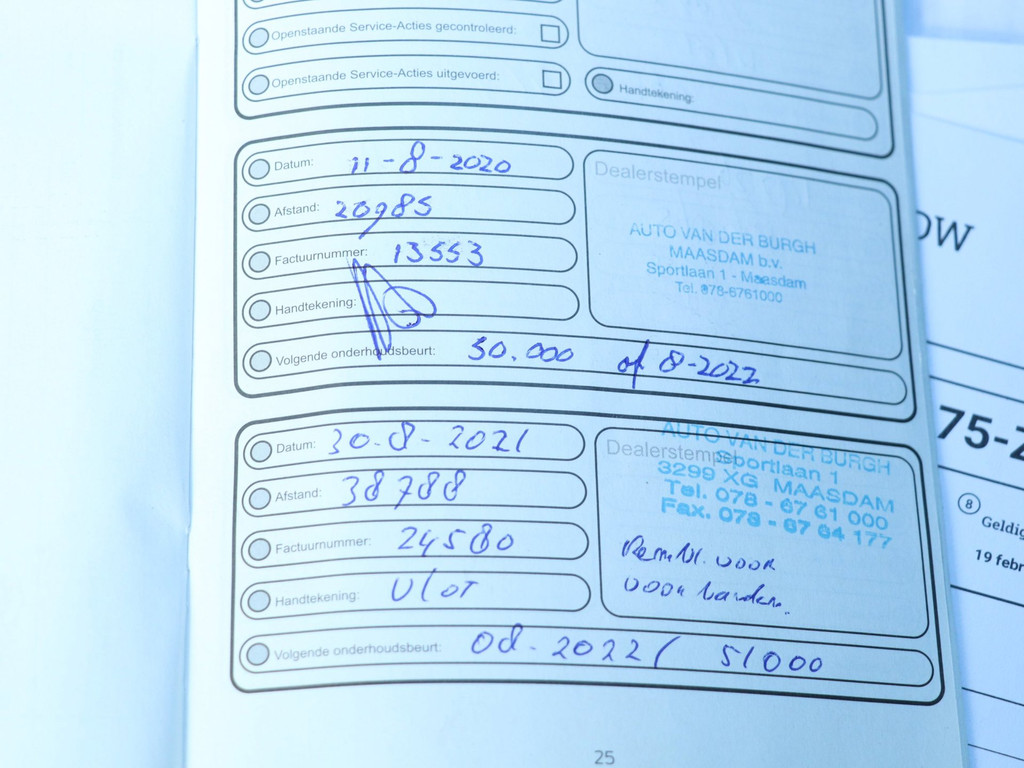 Openstaande Service-Acties gecontroleerd:
Openstaande Service-Acties uitgevoerd:
Handtekening:
Datum: 11-8-2020
Afstand: 20985
Factuurnummer: 13553
Handtekening:
Volgende onderhoudsbeurt: 50.000 of 8-2022
Dealerstempel
AUTO VAN DER BURGH
MAASDAM b.v.
Sportlaan 1 - Maasdam
Tel. 078-6761000
Datum: 30-8-2021
Afstand: 38788
Factuurnummer: 24580
Handtekening: Vlot
Volgende onderhoudsbeurt: 08-2022 / 51000
Dealerstempel
AUTO VAN DER BURGH
Sportlaan 1
3299 XG MAASDAM
Tel. 078 - 67 61 000
Fax. 078 - 67 64 177
voor
25
OW
75-Z
8
Geldig
19 febr